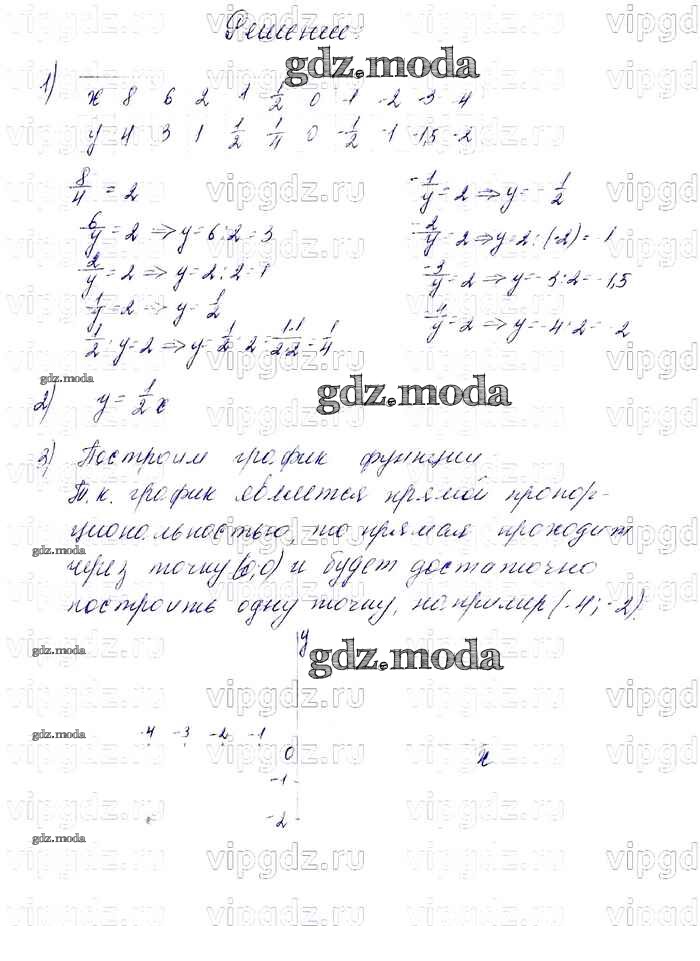 Решение:
gdz.moda
1)
x 8 6 2 1 1/2 0 -1 -2 -3 -4
y 4 3 1 1/2 1/4 0 -1/2 -1 -1,5 -2
8/4 = 2
6/y = 2 ⇒ y = 6 : 2 = 3
2/y = 2 ⇒ y = 2 : 2 = 1
1/y = 2 ⇒ y = 1/2
1/2 : y = 2 ⇒ y = 1/2 : 2 = 1·1/2·2 = 1/4
-1/y = 2 ⇒ y = -1/2
-2/y = 2 ⇒ y = 2 : (-2) = 1
-3/y = 2 ⇒ y = -3 : 2 = -1,5
y = 2 ⇒ y = -4 : 2 = -2
gdz.moda
2) y = 1/2 x
gdz.moda
3) Построим график функции
Т.к. график является прямой пропор-
циональностью, то прямая проходит
gdz.moda
через точку (0;0) и будет достаточно
построить одну точку, например (-4; -2).
y
gdz.moda
gdz.moda
gdz.moda
-4 -3 -2 -1
0
x
-1
-2
gdz.moda
vipgdz.ru